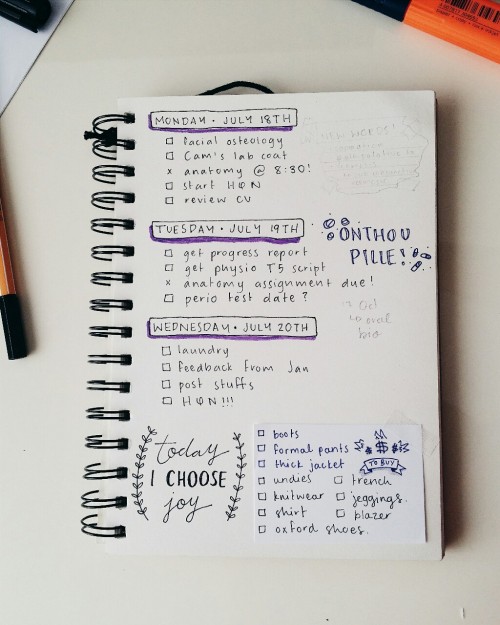 MONDAY · JULY 18TH
facial osteology
Cam's lab coat
x anatomy @ 8:30!
start HQN
review CV
NEW WORDS!
TUESDAY · JULY 19TH
get progress report
get physio T5 script
x anatomy assignment due!
perio test date?
ONTHOU
PILLE!
oral
bio
WEDNESDAY · JULY 20TH
laundry
feedback from Jan
post stuffs
HQN!!!
today
I CHOOSE
joy
boots
formal pants
thick jacket
undies
knitwear
shirt
oxford shoes.
$ $ $
TO BUY
trench
jeggings.
blazer